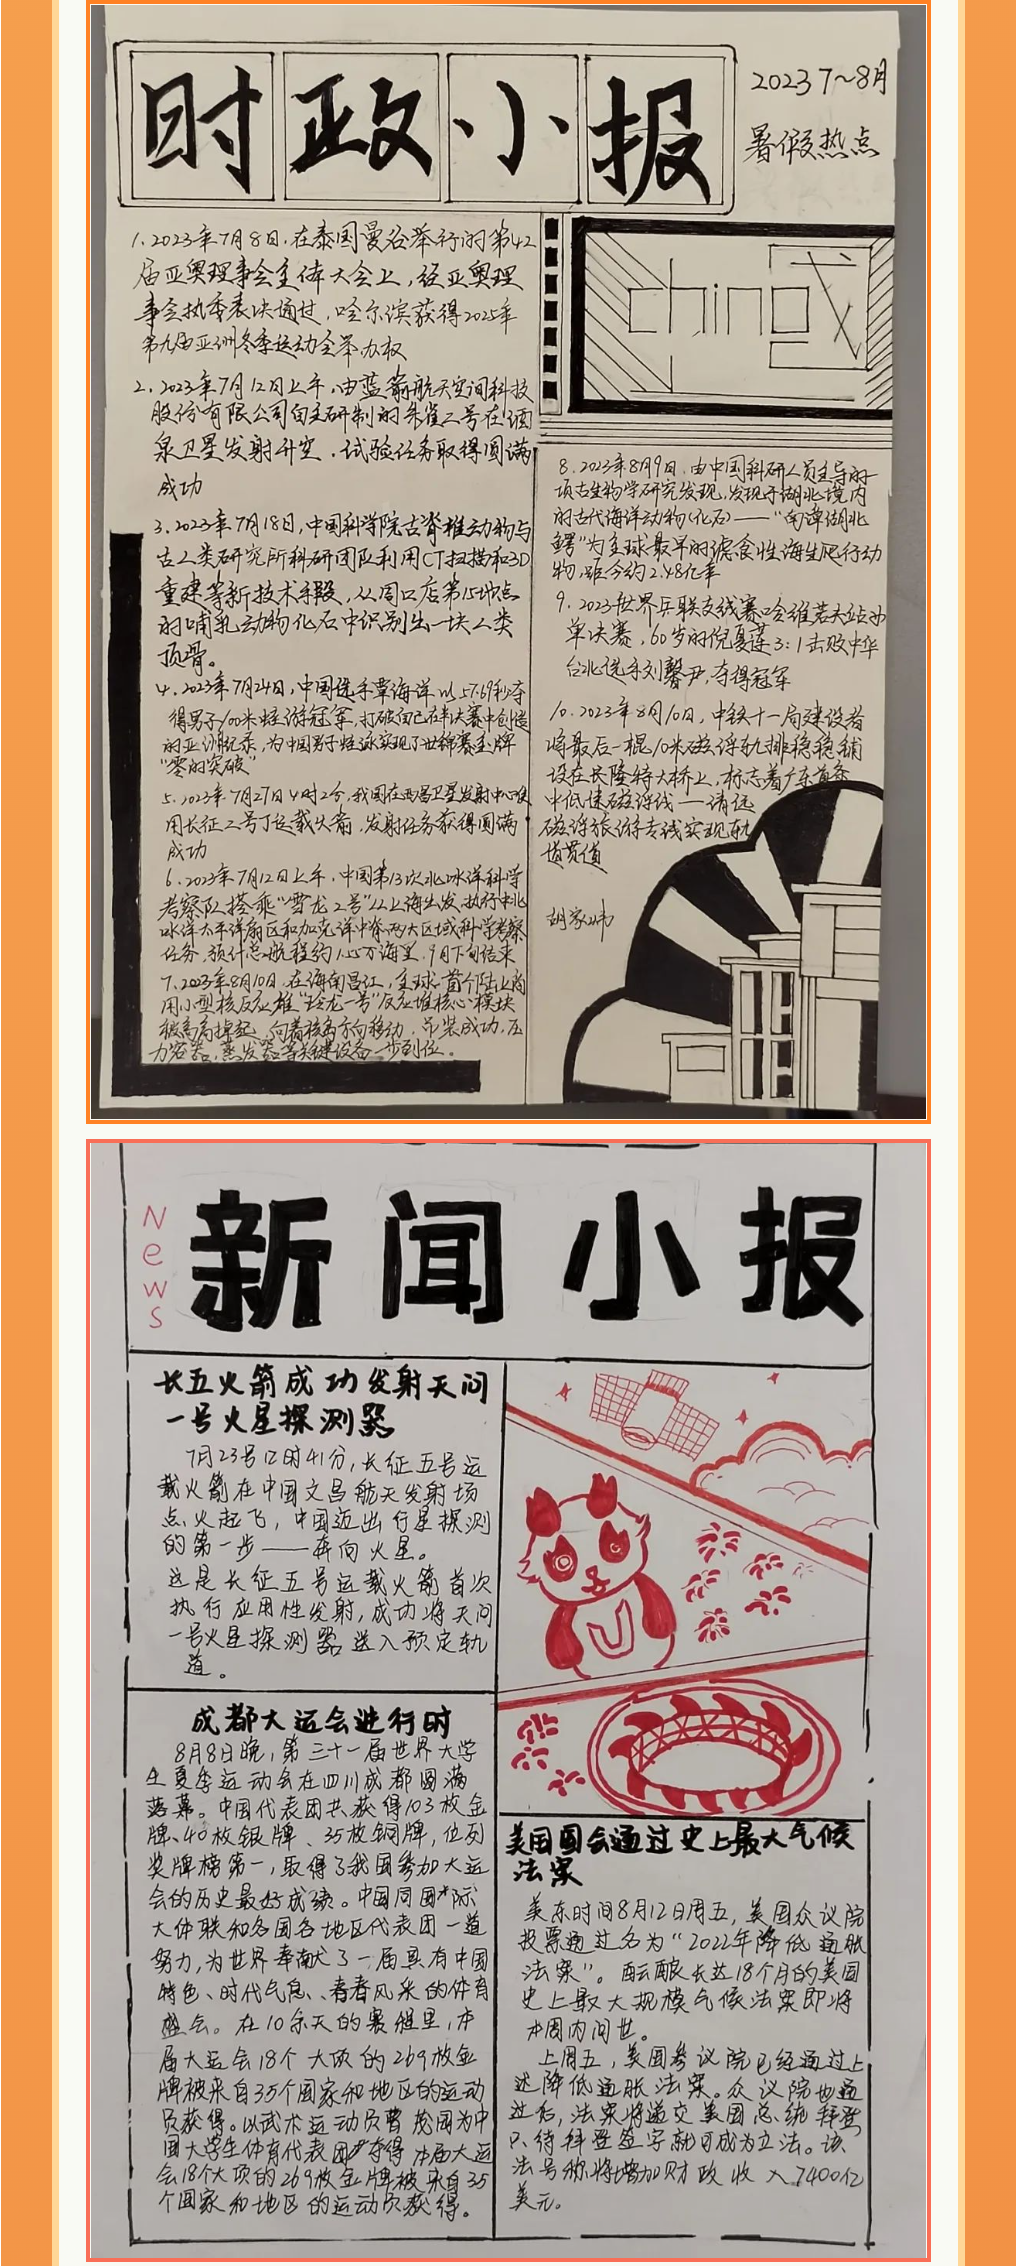 时政小报
2023 7~8月
暑假热点
1.2023年7月8日,在泰国曼谷举行的第42
届亚奥理事会全体大会上,经亚奥理
事会执委表决通过,哈尔滨获得2025年
第九届亚洲冬季运动会举办权
2.2023年7月12日上午,由蓝箭航天空间科技
股份有限公司自主研制的朱雀二号在酒
泉卫星发射升空,试验任务取得圆满
成功
3.2023年7月18日,中国科学院古脊椎动物与
古人类研究所科研团队利用CT扫描和3D
重建等新技术手段,从周口店第15地点
的哺乳动物化石中识别出一块人类
顶骨。
4.2023年7月24日,中国选手覃海洋以57.69秒夺
得男子100米蛙游冠军,打破自己在半决赛中创造
的亚洲纪录,为中国男子蛙泳实现了世锦赛金牌
“零的突破”
5.2023年7月27日4时2分,我国在西昌卫星发射中心使
用长征二号丁运载火箭,发射任务获得圆满
成功
6.2023年7月12日上午,中国第13次北冰洋科学
考察队搭乘“雪龙2号”从上海出发,执行中北
冰洋太平洋扇区和加克洋中脊两大区域科学考察
任务,预计总航程约1.55万海里,9月下旬结束
7.2023年8月10日,在海南昌江,全球首个陆上商
用小型核反应堆“玲龙一号”反应堆核心模块
被高高掉起,向着核岛方向移动,吊装成功,压
力容器,蒸发器等关键设备一步到位。
china
8.2023年8月9日,由中国科研人员主导的一
项古生物学研究发现,发现于湖北境内
的古代海洋动物(化石)——“南漳湖北
鳄”为全球最早的滤食性海生爬行动
物,距今约2.48亿年
9.2023世界乒联支线赛哈维若夫站女
单决赛,60岁的倪夏莲3:1击败中华
台北选手刘馨尹,夺得冠军
10.2023年8月10日,中铁十一局建设者
将最后一棍10米磁浮轨排稳稳铺
设在长隆特大桥上,标志着广东首条
中低速磁浮线——清远
磁浮旅游专线实现轨
道贯通
News
新闻小报
长五火箭成功发射天问
一号火星探测器
7月23号12时41分,长征五号运
载火箭在中国文昌航天发射场
点火起飞,中国迈出行星探测
的第一步——奔向火星。
这是长征五号运载火箭首次
执行应用性发射,成功将天问
一号火星探测器送入预定轨
道。
成都大运会进行时
8月8日晚,第三十一届世界大学
生夏季运动会在四川成都圆满
落幕。中国代表团共获得103枚金
牌、40枚银牌、35枚铜牌,位列
奖牌榜第一,取得了我国参加大运
会的历史最好成绩。中国同国际
大体联和各国各地区代表团一道
努力,为世界奉献了一届具有中国
特色、时代气息、青春风采的体育
盛会。在10余天的赛程里,本
届大运会18个大项的269枚金
牌被来自35个国家和地区的运动
员获得。以武术运动员曹茂园为中
国大学生体育代表团夺得本届大运
会18个大项的269枚金牌被来自35
个国家和地区的运动员获得。
美国国会通过史上最大气候
法案
美东时间8月12日周五,美国众议院
投票通过名为“2022年降低通胀
法案”。酝酿长达18个月的美国
史上最大规模气候法案即将
本周内问世。
上周五,美国参议院已经通过上
述降低通胀法案。众议院也通
过后,法案将递交美国总统拜登
只待拜登签字就可成为立法。该
法号称将增加财政收入7400亿
美元。